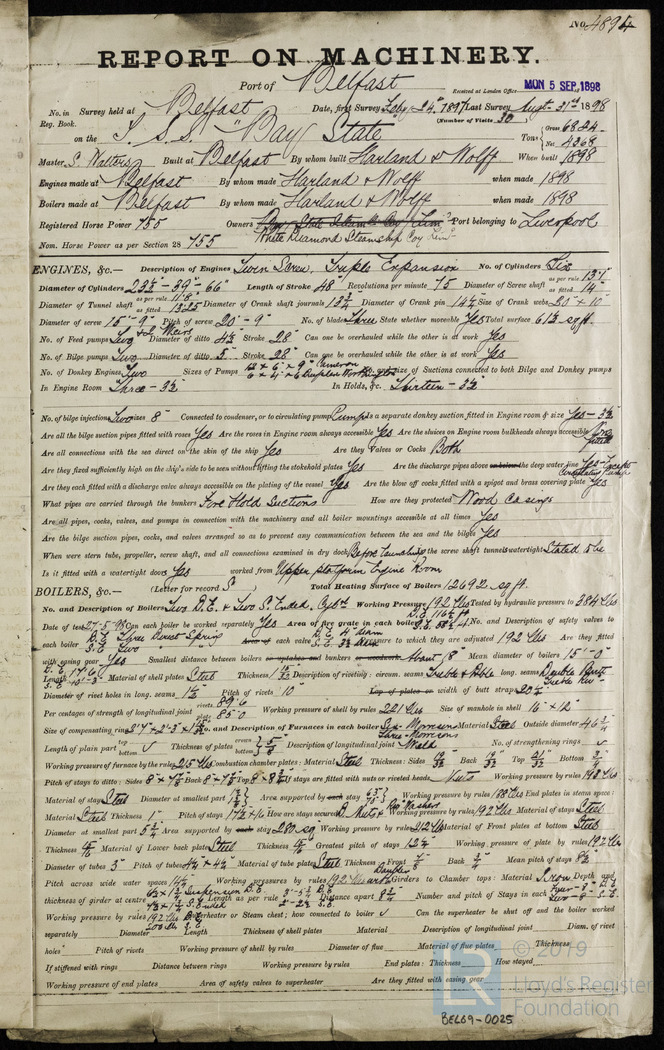 No. 4894
REPORT ON MACHINERY.
Port of Belfast
Received at London Office MON 5 SEP 1898
No. in Survey held at Belfast Date, first Survey Feby 24th 1897 Last Survey Augt 31st 1898
Reg. Book. (Number of Visits 30)
on the T. S. S. "Bay State" Tons Gross 6824 Net 4268
Master S. Walters Built at Belfast By whom built Harland & Wolff When built 1898
Engines made at Belfast By whom made Harland & Wolff when made 1898
Boilers made at Belfast By whom made Harland & Wolff when made 1898
Registered Horse Power 755 Owners Port belonging to Liverpool
Nom. Horse Power as per Section 28 755 White Diamond Steamship Coy Limd
ENGINES, &c.— Description of Engines Twin Screw, Triple Expansion No. of Cylinders Six
Diameter of Cylinders 23½"-39"-66" Length of Stroke 48" Revolutions per minute 75 Diameter of Screw shaft as per rule 13.7" as fitted 14"
Diameter of Tunnel shaft as per rule 11.8" as fitted 13.25 Diameter of Crank shaft journals 13¾ Diameter of Crank pin 14¼ Size of Crank webs 20" x 10"
Diameter of screw 15'-9" Pitch of screw 20'-9" No. of blades Three State whether moveable Yes Total surface 61½ sq. ft.
No. of Feed pumps Two Diameter of ditto 4½ Stroke 28" Can one be overhauled while the other is at work Yes
No. of Bilge pumps Two Diameter of ditto 5" Stroke 28" Can one be overhauled while the other is at work Yes
No. of Donkey Engines Two Sizes of Pumps No. and size of Suctions connected to both Bilge and Donkey pumps
In Engine Room Three - 3½ In Holds, &c. Thirteen - 3½
No. of bilge injections Two sizes 8" Connected to condenser, or to circulating pump Pump Is a separate donkey suction fitted in Engine room & size Yes - 3½
Are all the bilge suction pipes fitted with roses Yes Are the roses in Engine room always accessible Yes Are the sluices on Engine room bulkheads always accessible None fitted
Are all connections with the sea direct on the skin of the ship Yes Are they Valves or Cocks Both
Are they fixed sufficiently high on the ship's side to be seen without lifting the stokehold plates Yes Are the discharge pipes above or below the deep water line Yes - Except Circulating Pumps
Are they each fitted with a discharge valve always accessible on the plating of the vessel Yes Are the blow off cocks fitted with a spigot and brass covering plate Yes
What pipes are carried through the bunkers Fore Hold Suctions How are they protected Wood Casings
Are all pipes, cocks, valves, and pumps in connection with the machinery and all boiler mountings accessible at all times Yes
Are the bilge suction pipes, cocks, and valves arranged so as to prevent any communication between the sea and the bilges Yes
When were stern tube, propeller, screw shaft, and all connections examined in dry dock Before launching Is the screw shaft tunnel watertight Stated to be
Is it fitted with a watertight door Yes worked from Upper platform Engine Room
BOILERS, &c.— (Letter for record S) Total Heating Surface of Boilers 12692 sq. ft.
No. and Description of Boilers Two D.E. & Two S. Ended, Cylr. Working Pressure 192 lbs Tested by hydraulic pressure to 384 lbs
Date of test 27-5-98 Can each boiler be worked separately Yes Area of fire grate in each boiler No. and Description of safety valves to
each boiler D.E. Three Direct Spring S.E. Two Area of each valve Pressure to which they are adjusted 192 lbs Are they fitted
with easing gear Yes Smallest distance between boilers or uptakes and bunkers or woodwork About 18" Mean diameter of boilers 15'-0"
Length Material of shell plates Steel Thickness Description of riveting: circum. seams Treble & Dble long. seams Double Butt Treble Riv.
Diameter of rivet holes in long. seams Pitch of rivets 10" Lap of plates or width of butt straps 20¼
Per centages of strength of longitudinal joint rivets 89.6 plate 85.0 Working pressure of shell by rules 221 lbs Size of manhole in shell 16" x 12"
Size of compensating ring No. and Description of Furnaces in each boiler Six - Morrisons Three - Morrisons Material Steel Outside diameter 46¾
Length of plain part top bottom Thickness of plates crown bottom 5/8 Description of longitudinal joint Weld No. of strengthening rings
Working pressure of furnace by the rules 215 lbs Combustion chamber plates: Material Steel Thickness: Sides Back Top Bottom
Pitch of stays to ditto: Sides Back Top If stays are fitted with nuts or riveted heads Nuts Working pressure by rules 198 lbs
Material of stays Steel Diameter at smallest part Area supported by each stay Working pressure by rules End plates in steam space:
Material Steel Thickness 1" Pitch of stays How are stays secured D. Nuts & Riv. Washers Working pressure by rules 192 lbs Material of stays Steel
Diameter at smallest part Area supported by each stay 280 sq. Working pressure by rules Material of Front plates at bottom Steel
Thickness Material of Lower back plate Steel Thickness Greatest pitch of stays Working pressure of plate by rules 192 lbs
Diameter of tubes 3" Pitch of tubes Material of tube plates Steel Thickness: Front Back Mean pitch of stays
Pitch across wide water spaces 14½ Working pressures by rules 192 lbs Girders to Chamber tops: Material Iron Depth and
thickness of girder at centre Length as per rule Distance apart Number and pitch of Stays in each
Working pressure by rules Superheater or Steam chest; how connected to boiler Can the superheater be shut off and the boiler worked
separately Diameter Length Thickness of shell plates Material Description of longitudinal joint Diam. of rivet
holes Pitch of rivets Working pressure of shell by rules Diameter of flue Material of flue plates Thickness
If stiffened with rings Distance between rings Working pressure by rules End plates: Thickness How stayed
Working pressure of end plates Area of safety valves to superheater Are they fitted with easing gear
© 2019
Lloyd's Register
Foundation
BEL69-0025